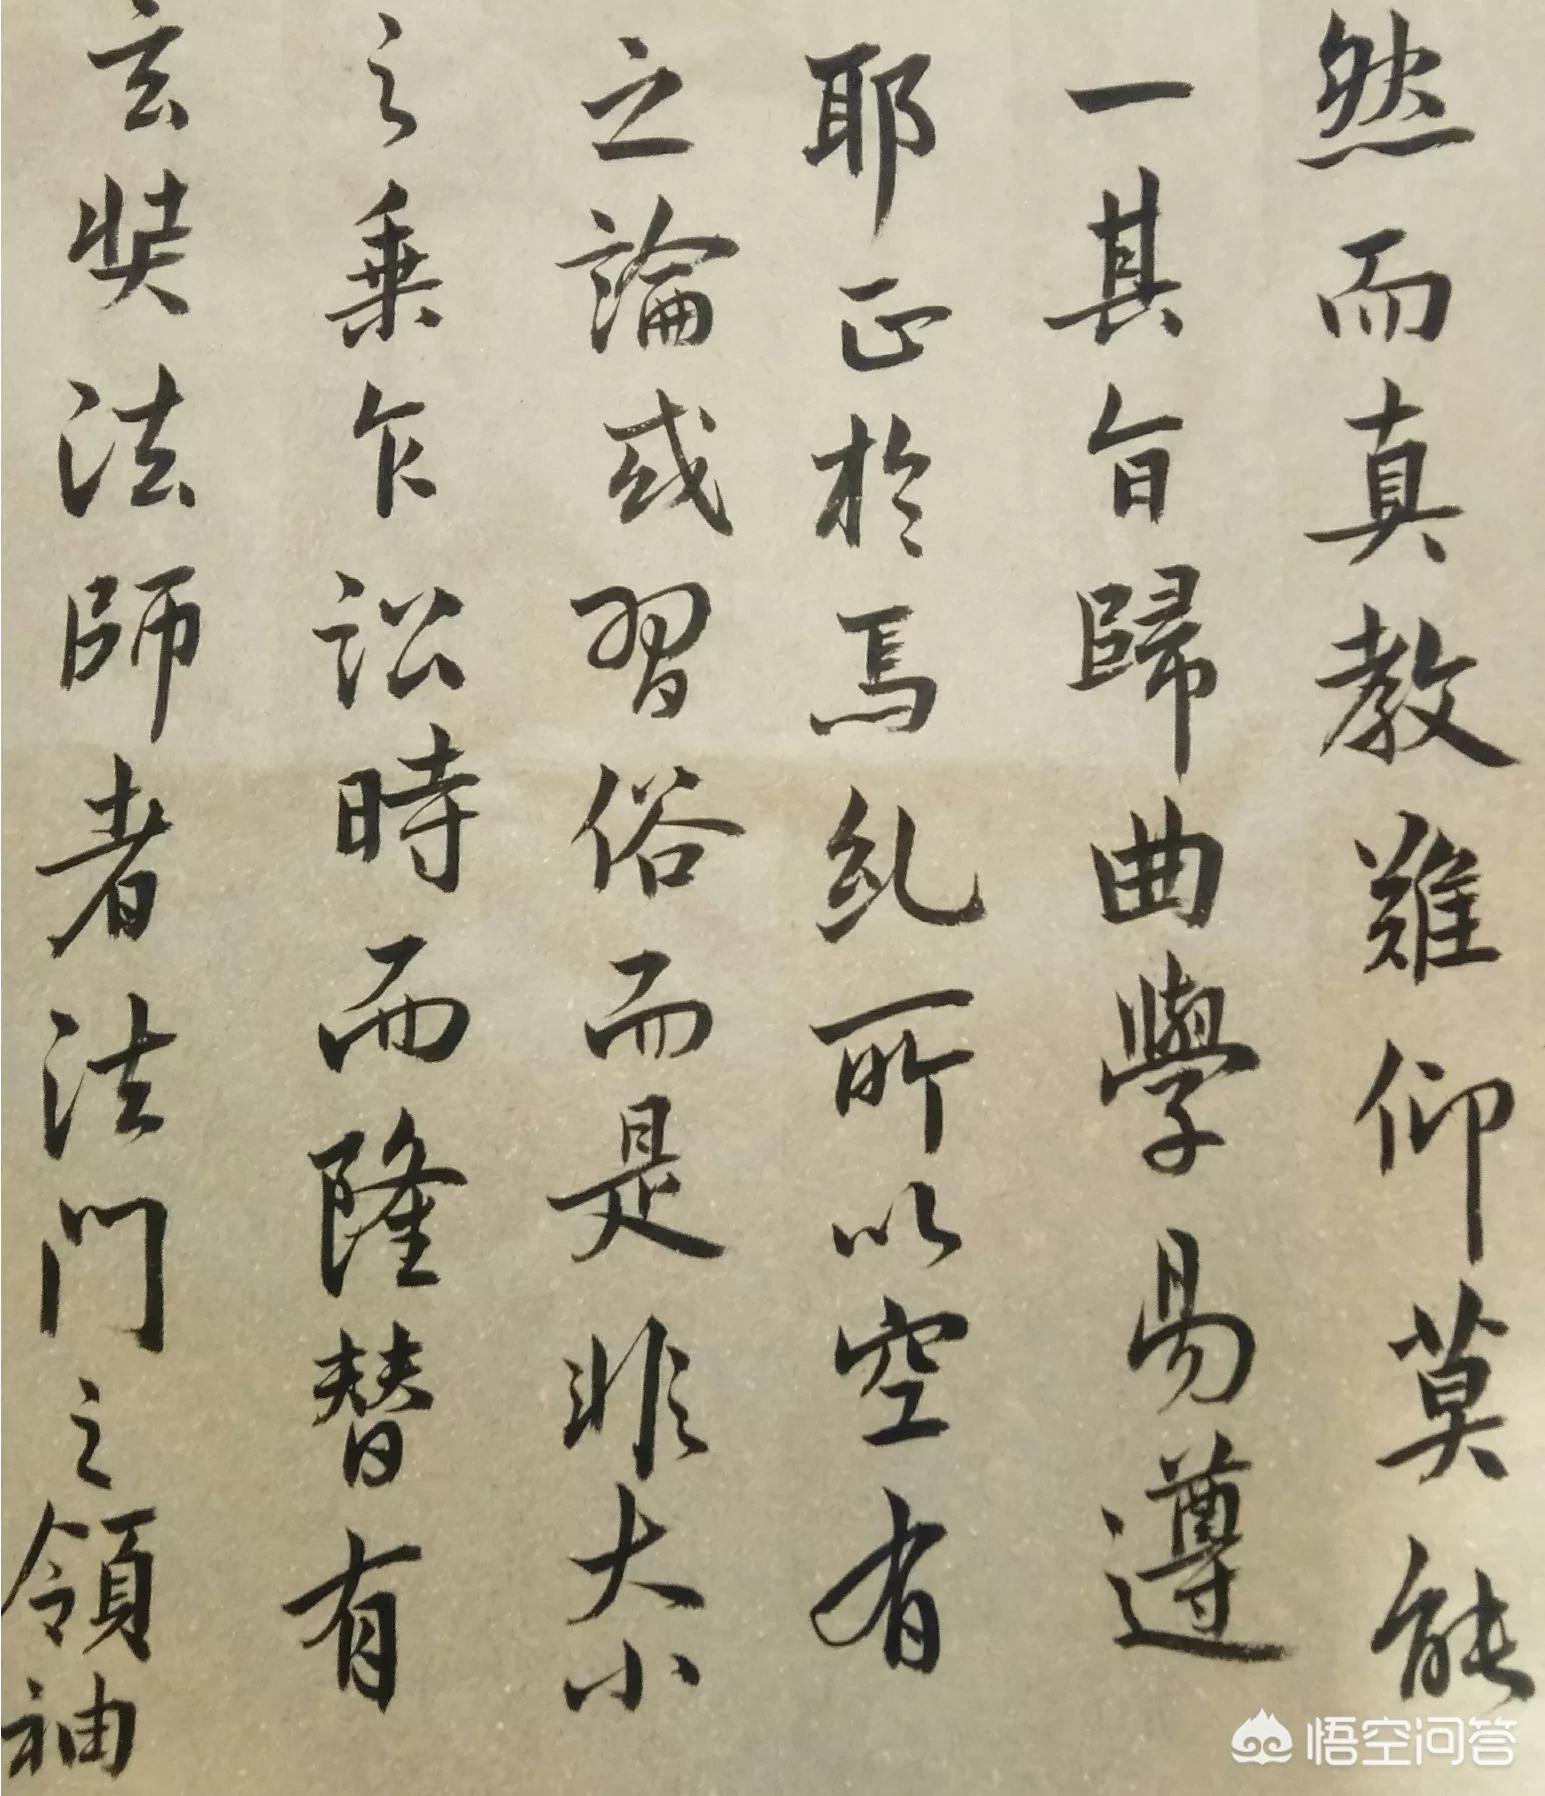 然而真教難仰莫能
一其旨歸曲學易遵
耶正於焉紏所以空有
之論或習俗而是非大小
之乘乍訟時而隆替有
玄奘法師者法門之領袖
悟空问答